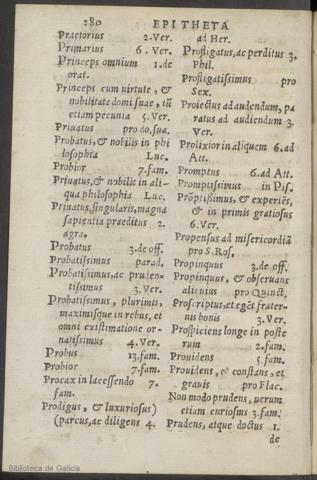 280 EPITHETA
Praetorius 2. Ver.
Primarius 6. Ver.
Princeps omnium 1. de
orat.
Princeps cum uirtute, &
nobilitate domi suae, tũ
etiam pecunia 5. Ver.
Priuatus pro do. sua.
Probatus, & nobilis in phi
losophia Luc.
Probior 7. fam.
Priuatus, & nobilis in ali-
qua philosophia Luc.
Priuatus, singularis, magna
sapientia praeditus 2.
agra.
Probatus 3. de off.
Probatissimus parad.
Probatissimus, ac pruden-
tissimus 3. Ver.
Probatissimus, plurimis,
maximisque in rebus, et
omni existimatione or-
natissimus 4. Ver.
Probus 13. fam.
Probior 7. fam.
Procax in lacessendo 7.
fam.
Prodigus, & luxuriosus)
(parcus, ac diligens 4.
ad Her.
Profligatus, ac perditus 3.
Phil.
Profligatissimus pro
Sex.
Proiectus ad audendum, pa
ratus ad audiendum 3.
Ver.
Prolixior in aliquem 6. ad
Att.
Promptus 6. ad Att.
Promptissimus in Pis.
Prõptissimus, & experiẽs,
& in primis gratiosus
6. Ver.
Propensus ad misericordiã
pro S. Ros,
Propinquus 3. de off.
Propinquus, & obseruans
alicuius pro Quinct.
Proscriptus, et egẽs frater-
nis bonis 3. Ver.
Prospiciens longe in poste
rum 2. fam.
Prouidens 5. fam.
Prouidens, & constans, et
grauis pro Flac.
Non modo prudens, uerum
etiam curiosus 3. fam.
Prudens, atque doctus 1.
de
Biblioteca de Galicia